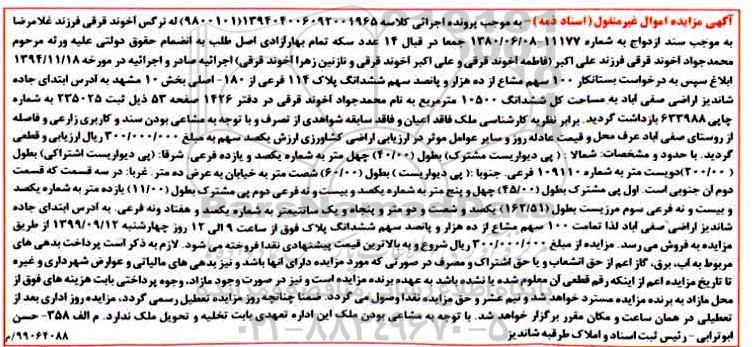 آگهی مزایده اموال غیرمنقول (اسناد ذمه) – به موجب پرونده اجرائی کلاسه ۱۳۹۴۰۴۰۰۶۰۹۲۰۰۱۹۶۵ (۹۸۰۰۱۰۱) له نرگس آخوند قرقی فرزند غلامرضا
به موجب سند ازدواج به شماره ۱۱۱۷۷-۱۳۸۰/۰۶/۰۸ جمعا در قبال ۱۴ عدد سکه تمام بهارآزادی اصل طلب به انضمام حقوق دولتی علیه ورثه مرحوم
محمدجواد آخوند قرقی فرزند علی اکبر (فاطمه آخوند قرقی و علی اکبر آخوند قرقی و نازنین زهرا آخوند قرقی) اجرائیه صادر و اجرائیه در مورخه ۱۳۹۴/۱۱/۱۸
ابلاغ سپس به درخواست بستانکار ۱۰۰ سهم مشاع از ده هزار و پانصد سهم ششدانگ پلاک ۱۱۴ فرعی از ۱۸۰- اصلی بخش ۱۰ مشهد به آدرس ابتدای جاده
شاندیز اراضی صفی آباد به مساحت کل ششدانگ ۱۰۵۰۰ مترمربع به نام محمدجواد آخوند قرقی در دفتر ۱۴۲۶ صفحه ۵۳ ذیل ثبت ۲۳۵۰۲۵ به شماره
چاپی ۶۳۳۹۸۸ بازداشت گردید. برابر نظریه کارشناسی ملک فاقد اعیان و فاقد سابقه شواهدی از تصرف و با توجه به مشاعی بودن سند و کاربری زارعی و فاصله
از روستای صفی آباد عرف محل و قیمت عادله روز و سایر عوامل موثر در ارزیابی اراضی کشاورزی ارزش یکصد سهم به مبلغ ۳۰۰/۰۰۰/۰۰۰ ریال ارزیابی و قطعی
گردید. با حدود و مشخصات: شمالا : ( پی دیواریست مشترک) بطول (۴۰/۰۰) چهل متر به شماره یکصد و یازده فرعی. شرقا: (پی دیواریست اشتراکی) بطول
(۲۰۰/۰۰)دویست متر به شماره ۱۰۹۱۱۰ فرعی. جنوبا :( پی دیواریست ) بطول (۶۰/۰۰) شصت متر به خیابان به عرض ده متر. غربا: در سه قسمت که قسمت
دوم آن جنوبی است. اول پی مشترک بطول (۴۵/۰۰) چهل و پنج متر به شماره یکصد و بیست و نه فرعی دوم پی مشترک بطول (۱۱/۰۰) یازده متر به شماره یکصد
و بیست و نه فرعی سوم مرزیست بطول (۱۶۲/۵۱) یکصد و شصت و دو متر و پنجاه و یک سانتیمتر به شماره یکصد و هفتاد ونه فرعی. به آدرس ابتدای جاده
شاندیز اراضی صفی آباد لذا تمامت ۱۰۰ سهم مشاع از ده هزار و پانصد سهم ششدانگ پلاک فوق از ساعت ۹ الی ۱۲ روز چهارشنبه ۱۳۹۹/۰۹/۱۲ از طریق
مزایده به فروش می رسد. مزایده از مبلغ ۳۰۰/۰۰۰/۰۰۰ ریال شروع و به بالاترین قیمت پیشنهادی نقدا فروخته می شود. لازم به ذکر است پرداخت بدهی های
مربوط به آب، برق، گاز اعم از حق انشعاب و یا حق اشتراک و مصرف در صورتی که مورد مزایده دارای آنها باشد و نیز بدهی های مالیاتی و عوارض شهرداری و غیره
تا تاریخ مزایده اعم از اینکه رقم قطعی آن معلوم شده یا نشده باشد به عهده برنده مزایده است و نیز در صورت وجود مازاد، وجوه پرداختی بابت هزینه های فوق از
محل مازاد به برنده مزایده مسترد خواهد شد و نیم عشر و حق مزایده نقدا وصول می گردد. ضمنا چنانچه روز مزایده تعطیل رسمی گردد، مزایده روز اداری بعد از
تعطیلی در همان ساعت و مکان مقرر برگزار خواهد شد. با توجه به مشاعی بودن ملک این اداره تعهدی بابت تخلیه و تحویل ملک ندارد. م الف ۳۵۸- حسن
ابوترابی – رئیس ثبت اسناد و املاک طرقبه شاندیز ۹۹۰۶۴۰۸۸/م
ParsNamadData
۰۲۱-۸۸۳۴۹۶۷۰-۵